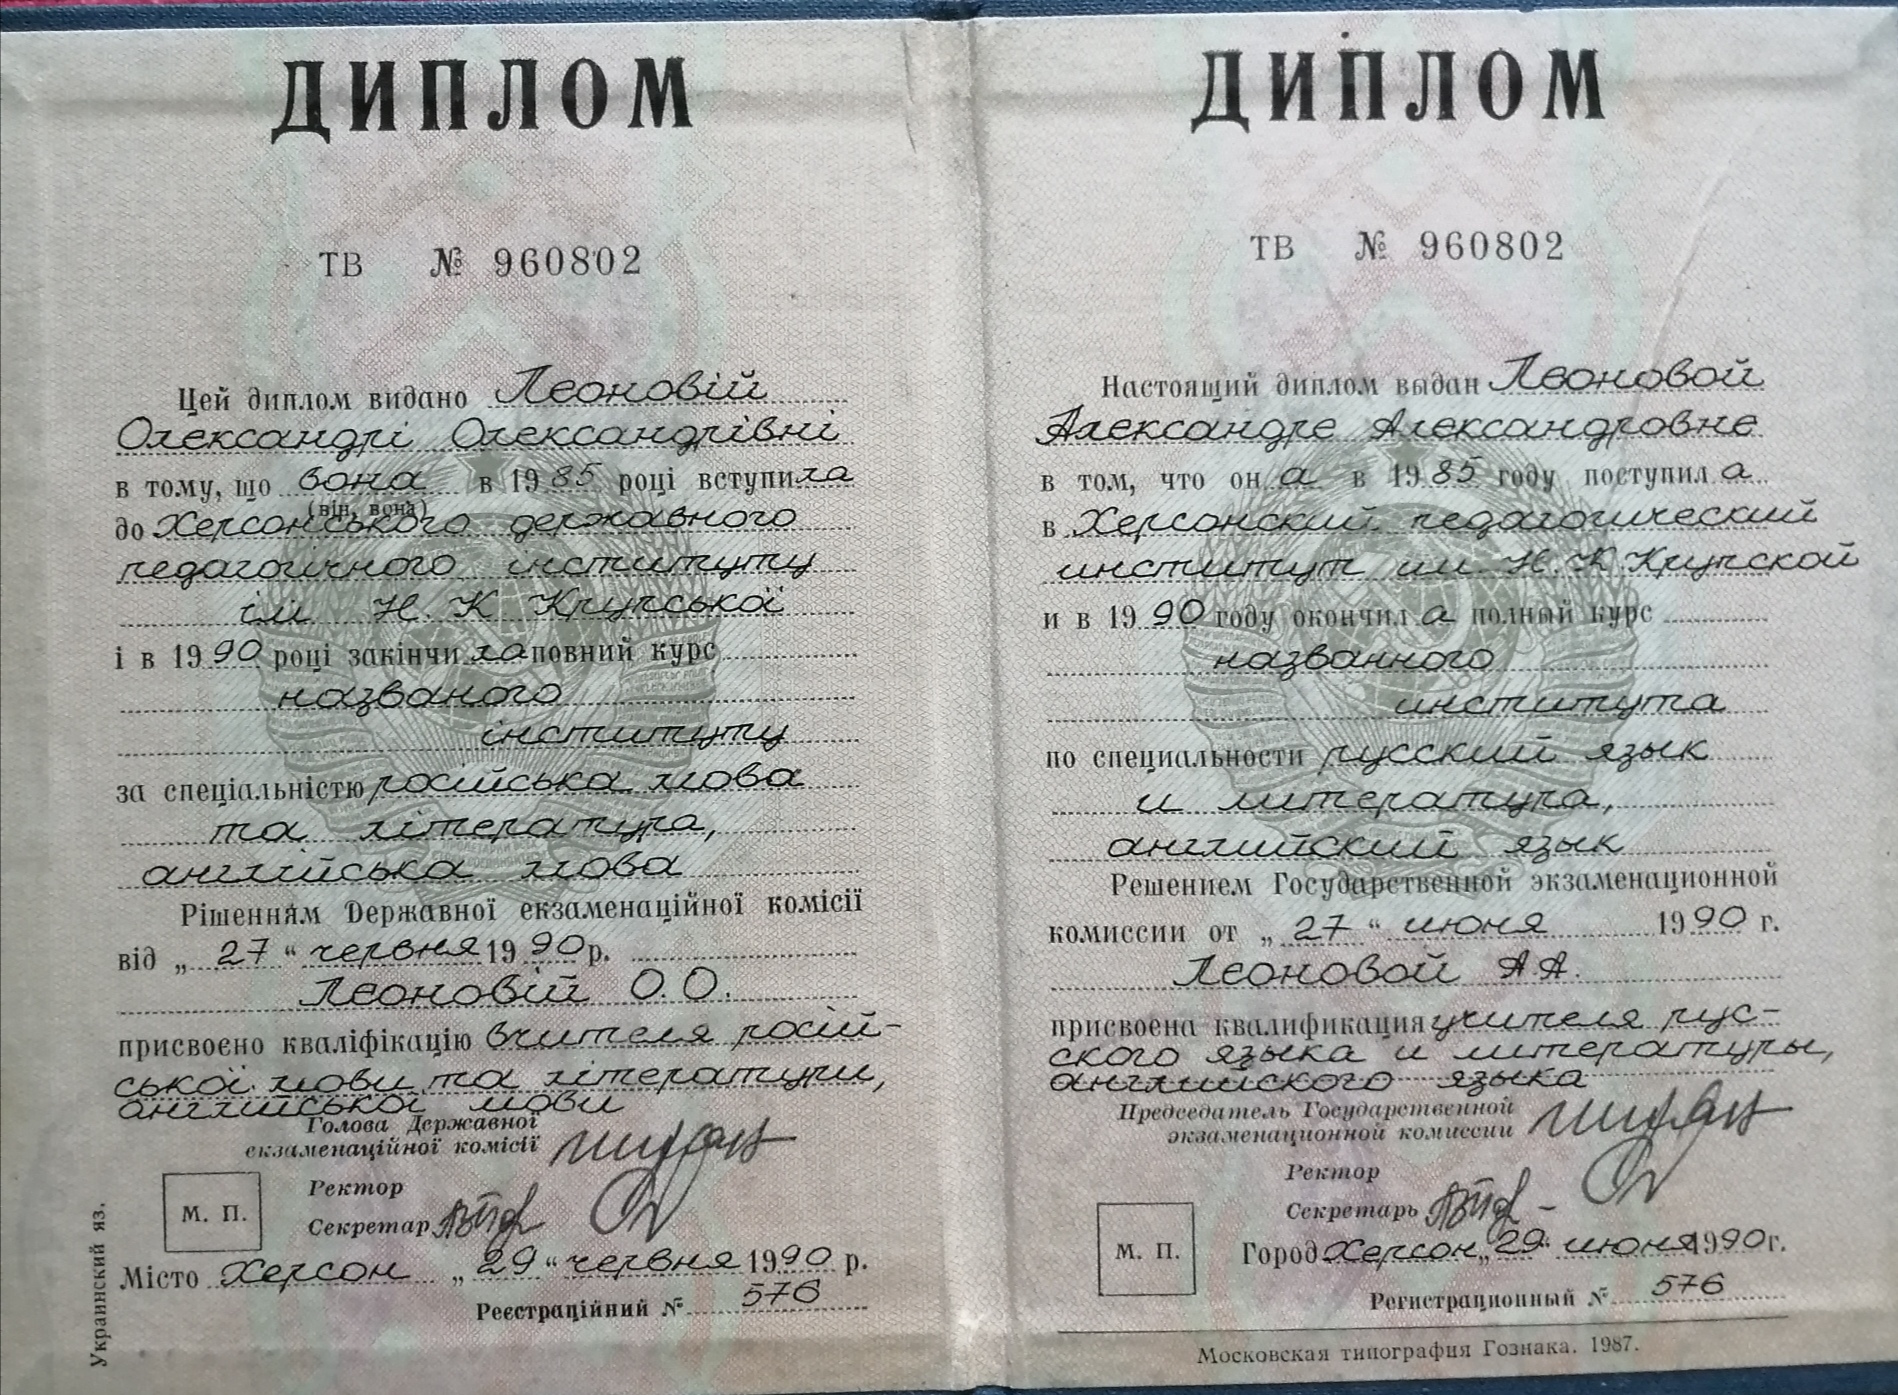 ДИПЛОМ
ТВ № 960802
Цей диплом видано Леоновій
Олександрі Олександрівні
в тому, що вона в 1985 році вступила
(він, вона)
до Херсонського державного
педагогічного інституту
ім Н.К Крупської
і в 1990 році закінчила повний курс
названого
інституту
за спеціальністю російська мова
та література,
англійська мова
Рішенням Державної екзаменаційної комісії
від „27“ червня 1990 р.
Леоновій О.О.
присвоєно кваліфікацію вчителя росій-
ської мови та літератури,
англійської мови
Голова Державної
екзаменаційної комісії
Ректор
М. П.
Секретар
Місто Херсон „29“ червня 1990 р.
Реєстраційний № 576
Украинский яз.
ДИПЛОМ
ТВ № 960802
Настоящий диплом выдан Леоновой
Александре Александровне
в том, что она в 1985 году поступила
в Херсонский педагогический
институт им Н.К Крупской
и в 1990 году окончила полный курс
названного
института
по специальности русский язык
и литература,
английский язык
Решением Государственной экзаменационной
комиссии от „27“ июня 1990 г.
Леоновой А.А.
присвоена квалификация учителя рус-
ского языка и литературы,
английского языка
Председатель Государственной
экзаменационной комиссии
Ректор
Секретарь
М. П.
Город Херсон „29“ июня 1990г.
Регистрационный № 576
Московская типография Гознака. 1987.